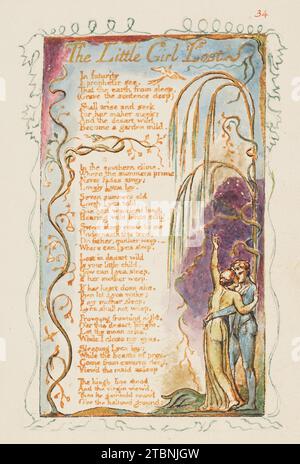 34
The Little Girl Lost
In futurity
I prophetic see,
That the earth from sleep,
(Grave the sentence deep)
Shall arise and seek
For her maker meek:
And the desart wild
Become a garden mild.
In the southern clime,
Where the summers prime
Never fades away;
Lovely Lyca lay.
Seven summers old
Lovely Lyca told,
She had wanderd long,
Hearing wild birds song.
Sweet sleep come to me
Underneath this tree;
Do father, mother weep,
Where can Lyca sleep.
Lost in desart wild
Is your little child.
How can Lyca sleep,
If her mother weep.
If her heart does ake,
Then let Lyca wake;
If my mother sleep,
Lyca shall not weep.
Frowning frowning night,
O'er this desart bright,
Let thy moon arise,
While I close my eyes.
Sleeping Lyca lay;
While the beasts of prey,
Come from caverns deep,
View'd the maid asleep
The kingly lion stood
And the virgin view'd,
Then he gambold round
O'er the hallowd ground:
alamy
Image ID: 2TBNJGW
www.alamy.com